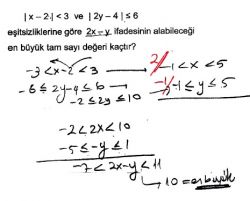 | x - 2 | < 3 ve | 2y - 4 | ≤ 6
eşitsizliklerine göre 2x - y ifadesinin alabileceği
en büyük tam sayı değeri kaçtır?
-3 < x-2 < 3 → 2/ -1 < x < 5
-6 ≤ 2y-4 ≤ 6 → -1/ -1 ≤ y ≤ 5
-2 ≤ 2y ≤ 10
-2 < 2x < 10
-5 ≤ -y ≤ 1
-7 < 2x-y < 11
→ 10 = en büyük